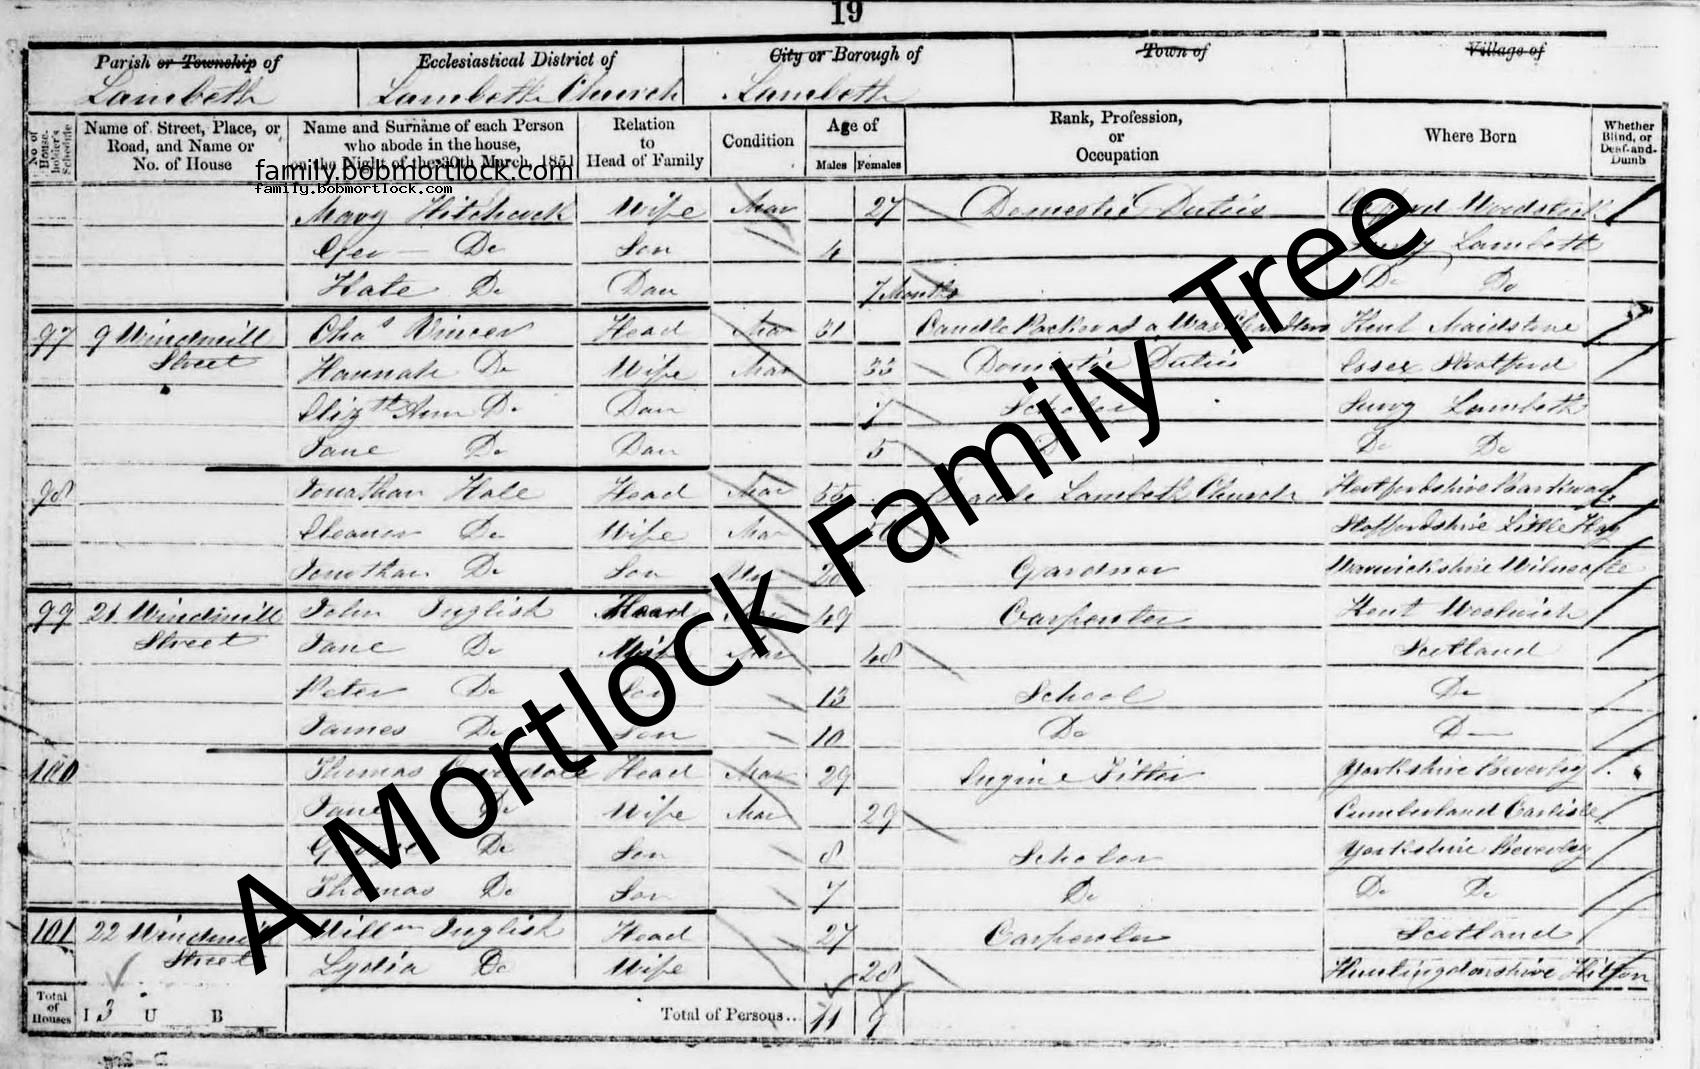 19
Parish or Township of
Ecclesiastical District of
City or Borough of
Town of
Village of
Lambeth
Lambeth Church
Lambeth
No of House-holder's Schedule
Name of Street, Place, or Road, and Name or No. of House
Name and Surname of each Person who abode in the house, on the Night of the 30th March, 1851
Relation to Head of Family
Condition
Age of
Males
Females
Rank, Profession, or Occupation
Where Born
Whether Blind, or Deaf-and-Dumb
family.bobmortlock.com
family.bobmortlock.com
Mary Hitchcock Wife Mar 27 Domestic Duties Woodstock
Geo Do Son 4 Surry Lambeth
Kate Do Dau 7 Months Do Do
97 9 Windmill Chas Head Mar 31 Candle Packer at a Wax Chandlers Kent Maidstone
Street Hannah Do Wife Mar 33 Domestic Duties Essex Stratford
Elizth Ann Do Dau 7 Scholar Surry Lambeth
Jane Do Dau 5 D Do Do
98 Jonathan Hale Head Mar 55 Lambeth Church Hertfordshire Barkway
Eleanor Do Wife Mar Staffordshire Little Hay
Jonathan Do Son Un 20 Gardner Warwickshire Wilnecote
99 21 Windmill John Inglish Head 49 Carpenter Kent Woolwich
Street Jane Do Wife Mar 48 Scotland
Peter Do Son 13 School Do
James Do Son 10 Do Do
100 Thomas Head Mar 29 Engine Fitter Yorkshire Beverley
Jane Do Wife Mar 29 Cumberland Carlisle
George Do Son 8 Scholar Yorkshire Beverley
Thomas Do Son 7 Do Do Do
101 22 Windmill Willam Inglish Head 27 Carpenter Scotland
Street Lydia Do Wife 28 Huntingdonshire Hilton
Total of Houses
I 3 U B
Total of Persons..
11 9
A Mortlock Family Tree